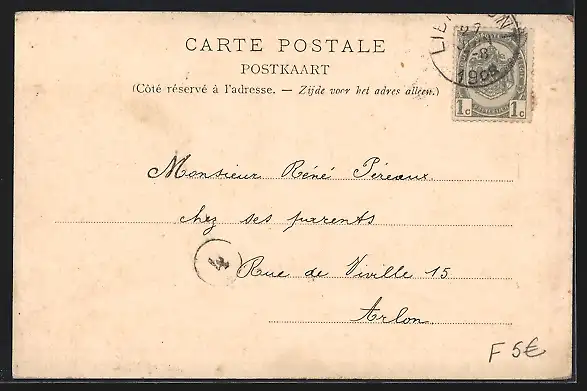 CARTE POSTALE
POSTKAART
(Côté réservé à l'adresse. — Zijde voor het adres alleen.)
1c 1c
Monsieur Réné Péreaux
chez ses parents
Rue de Viville 15
Arlon
F 5€